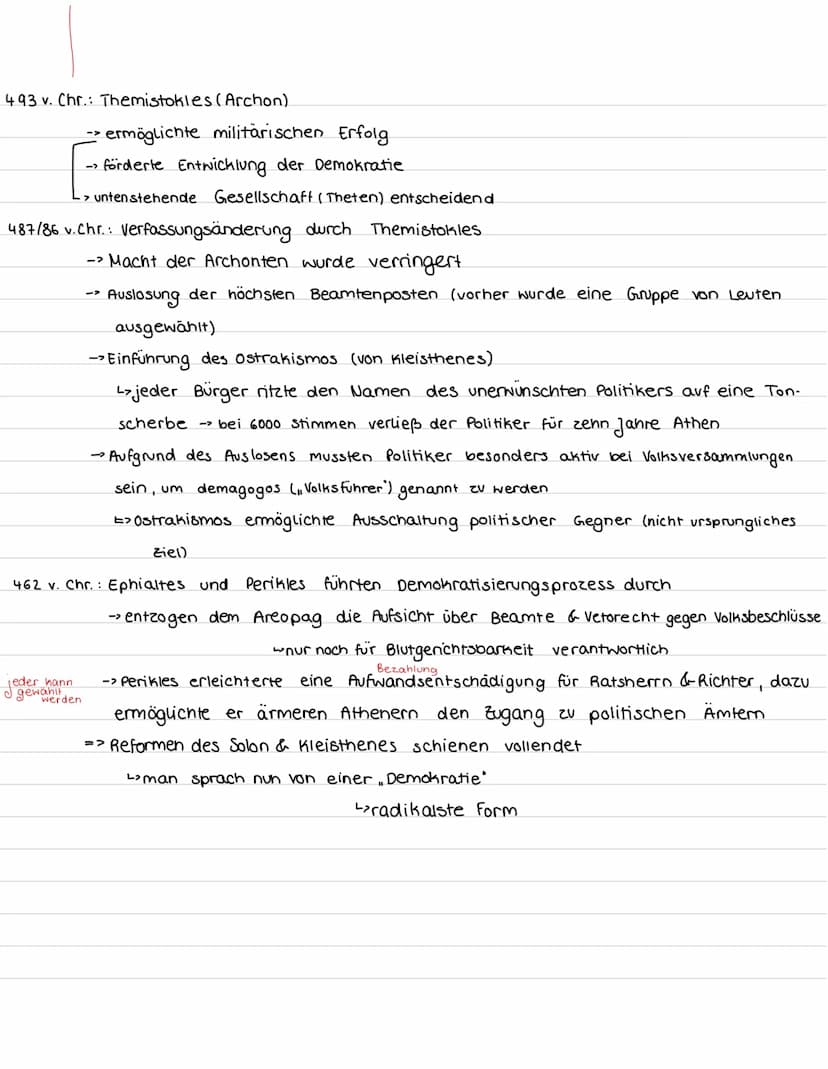 493 v. Chr.: Themistokles (Archon)
-> ermöglichte militärischen Erfolg
-> förderte Entwicklung der Demokratie
-> untenstehende Gesellschaft (Theten) entscheidend
487/86 v. Chr.: Verfassungsänderung durch Themistokles
-> Macht der Archonten wurde verringert
-> Auslosung der höchsten Beamtenposten (vorher wurde eine Gruppe von Leuten
ausgewählt)
-> Einführung des Ostrakismos (von Kleisthenes)
↳ jeder Bürger ritzte den Namen des unerwünschten Politikers auf eine Ton-
scherbe -> bei 6000 Stimmen verließ der Politiker für zehn Jahre Athen
-> Aufgrund des Auslosens mussten Politiker besonders aktiv bei Volksversammlungen
sein, um demagogos („Volksführer") genannt zu werden
=> Ostrakismos ermöglichte Ausschaltung politischer Gegner (nicht ursprungliches
Ziel)
462 v. Chr.: Ephialtes und Perikles führten Demokratisierungsprozess durch
-> entzogen dem Areopag die Aufsicht über Beamte & Vetorecht gegen Volksbeschlüsse
↳ nur noch für Blutgerichtsbarkeit verantwortlich
Bezahlung
jeder kann
gewählt
werden
-> Perikles erleichterte eine Aufwandsentschädigung für Ratsherrn & Richter, dazu
ermöglichte er ärmeren Athenern den Zugang zu politischen Ämtern
=> Reformen des Solon & Kleisthenes schienen vollendet
↳ man sprach nun von einer „Demokratie"
↳ radikalste Form